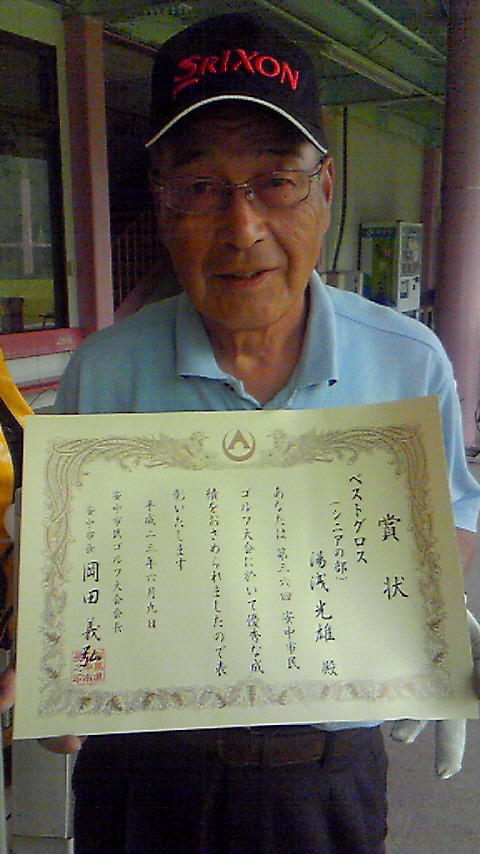 SRIXON
賞状
ベストグロス
(シニアの部)
湯浅光雄 殿
あなたは第三六回 安中市民
ゴルフ大会に於いて優秀な成
績をおさめられましたので表
彰いたします
平成二三年六月九日
安中市民ゴルフ大会会長
安中市長 岡田義弘